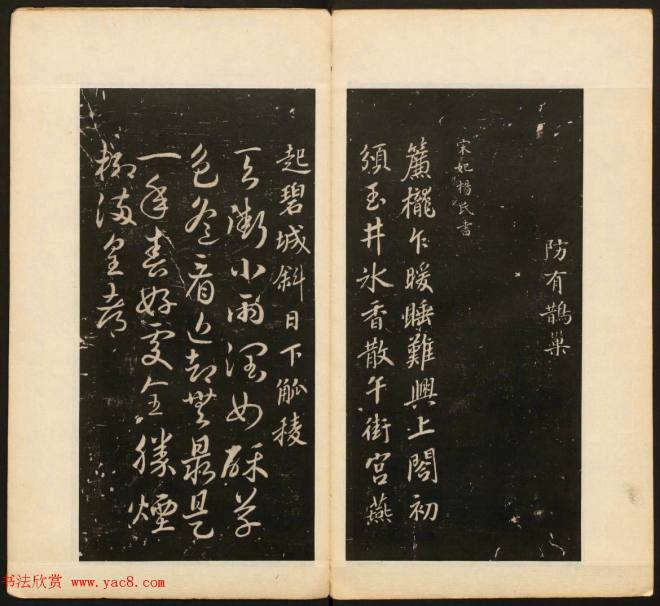 防有鵲巢
宋妃楊氏書
簾櫳乍暖睡難興上閤初
頒玉井冰香散午街宮燕
起碧城斜日下觚稜
天街小雨潤如酥草
色遙看近却無最是
一年春好處全勝煙
柳滿皇都
书法欣赏 www.yac8.com